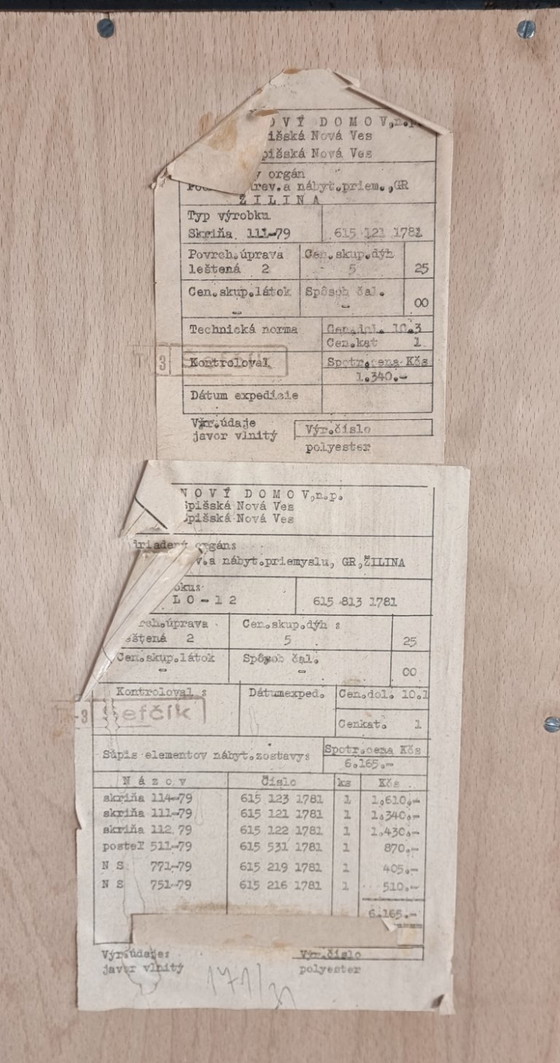 OVÝ DOMOV,n.p.
pišská Nová Ves
pišská Nová Ves
orgán
a nábyt.priem.,GR
ŽILINA
Typ výrobku
Skriňa 111-79 615 121 1781
Povrch.úprava Cen.skup.dýh
leštená 2 5 25
Cen.skup.látok Spôsob čal.
- 00
Technická norma Cen.dol. 10.3
Cen.kat 1
3 Kontroloval Spotr.cena Kčs
1.340.-
Dátum expedície
Výr.údaje Výr.číslo
javor vlnitý polyester
NOVÝ DOMOV,n.p.
Spišská Nová Ves
Spišská Nová Ves
riadený orgán:
v.a nábyt.priemyslu, GR,ŽILINA
LO-12 615 813 1781
rch.úprava Cen.skup.dýh :
eštená 2 5 25
Cen.skup.látok Spôsob čal.
- - 00
Kontroloval : Dátumexped. Cen.dol. 10.1
3 Šefčík
Cenkat. 1
Súpis elementov nábyt.zostavy: Spotr.cena Kčs
6.165.-
Názov Číslo ks Kčs
skriňa 114-79 615 123 1781 1 1.610.-
skriňa 111-79 615 121 1781 1 1.340.-
skriňa 112 79 615 122 1781 1 1.430.-
posteľ 511-79 615 531 1781 1 870.-
N S 771-79 615 219 1781 1 405.-
N S 751-79 615 216 1781 1 510.-
6.165.-
Výr.údaje: Výr.číslo
javor vlnitý polyester